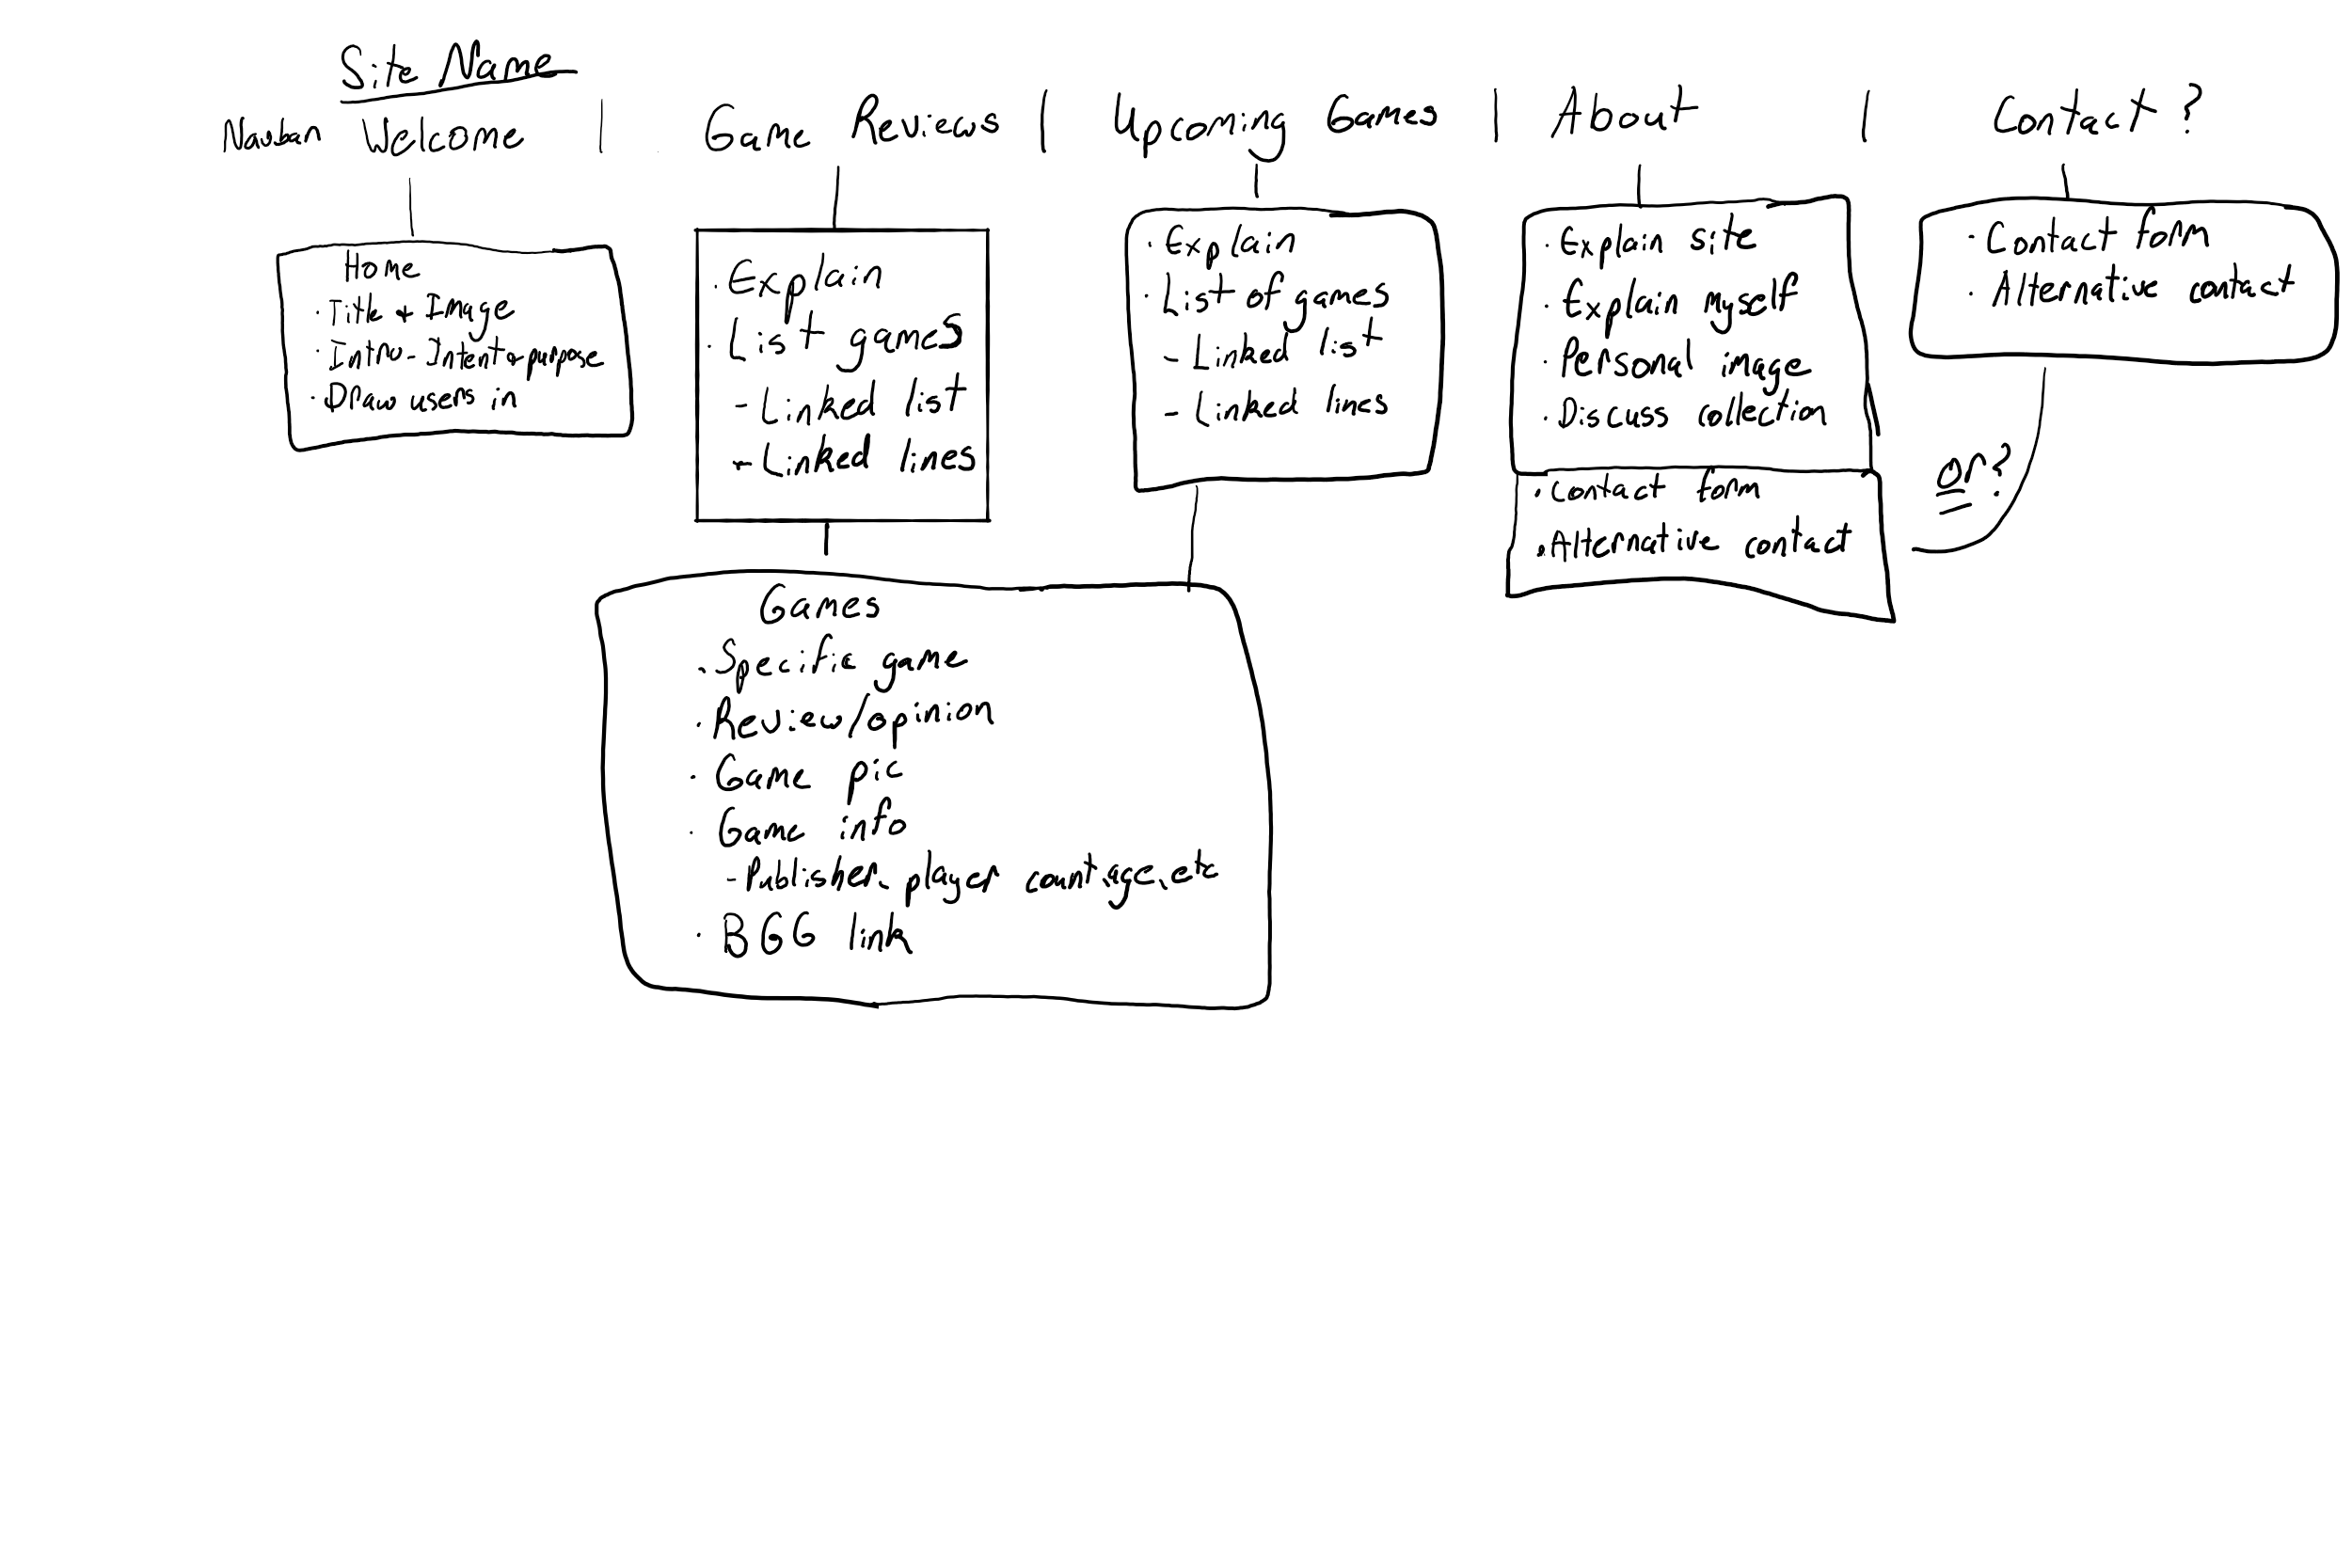 Site Name
Navbar Welcome | Game Reviews | Upcoming Games | About | Contact ?
Home
· Title & Image
· Intro - Intent & purpose
· Draw users in
· Explain
· List games
- Linked list
- Linked lines
· Explain
· List of games
- Linked list
- Linked lines
· Explain site
· Explain myself
· Personal image
· Discuss collection
· Contact form
· Alternative contact
or?
· Contact form
· Alternative contact
Games
· Specific game
· Review/opinion
· Game pic
· Game info
- Publisher, player count, age, etc
· BGG link